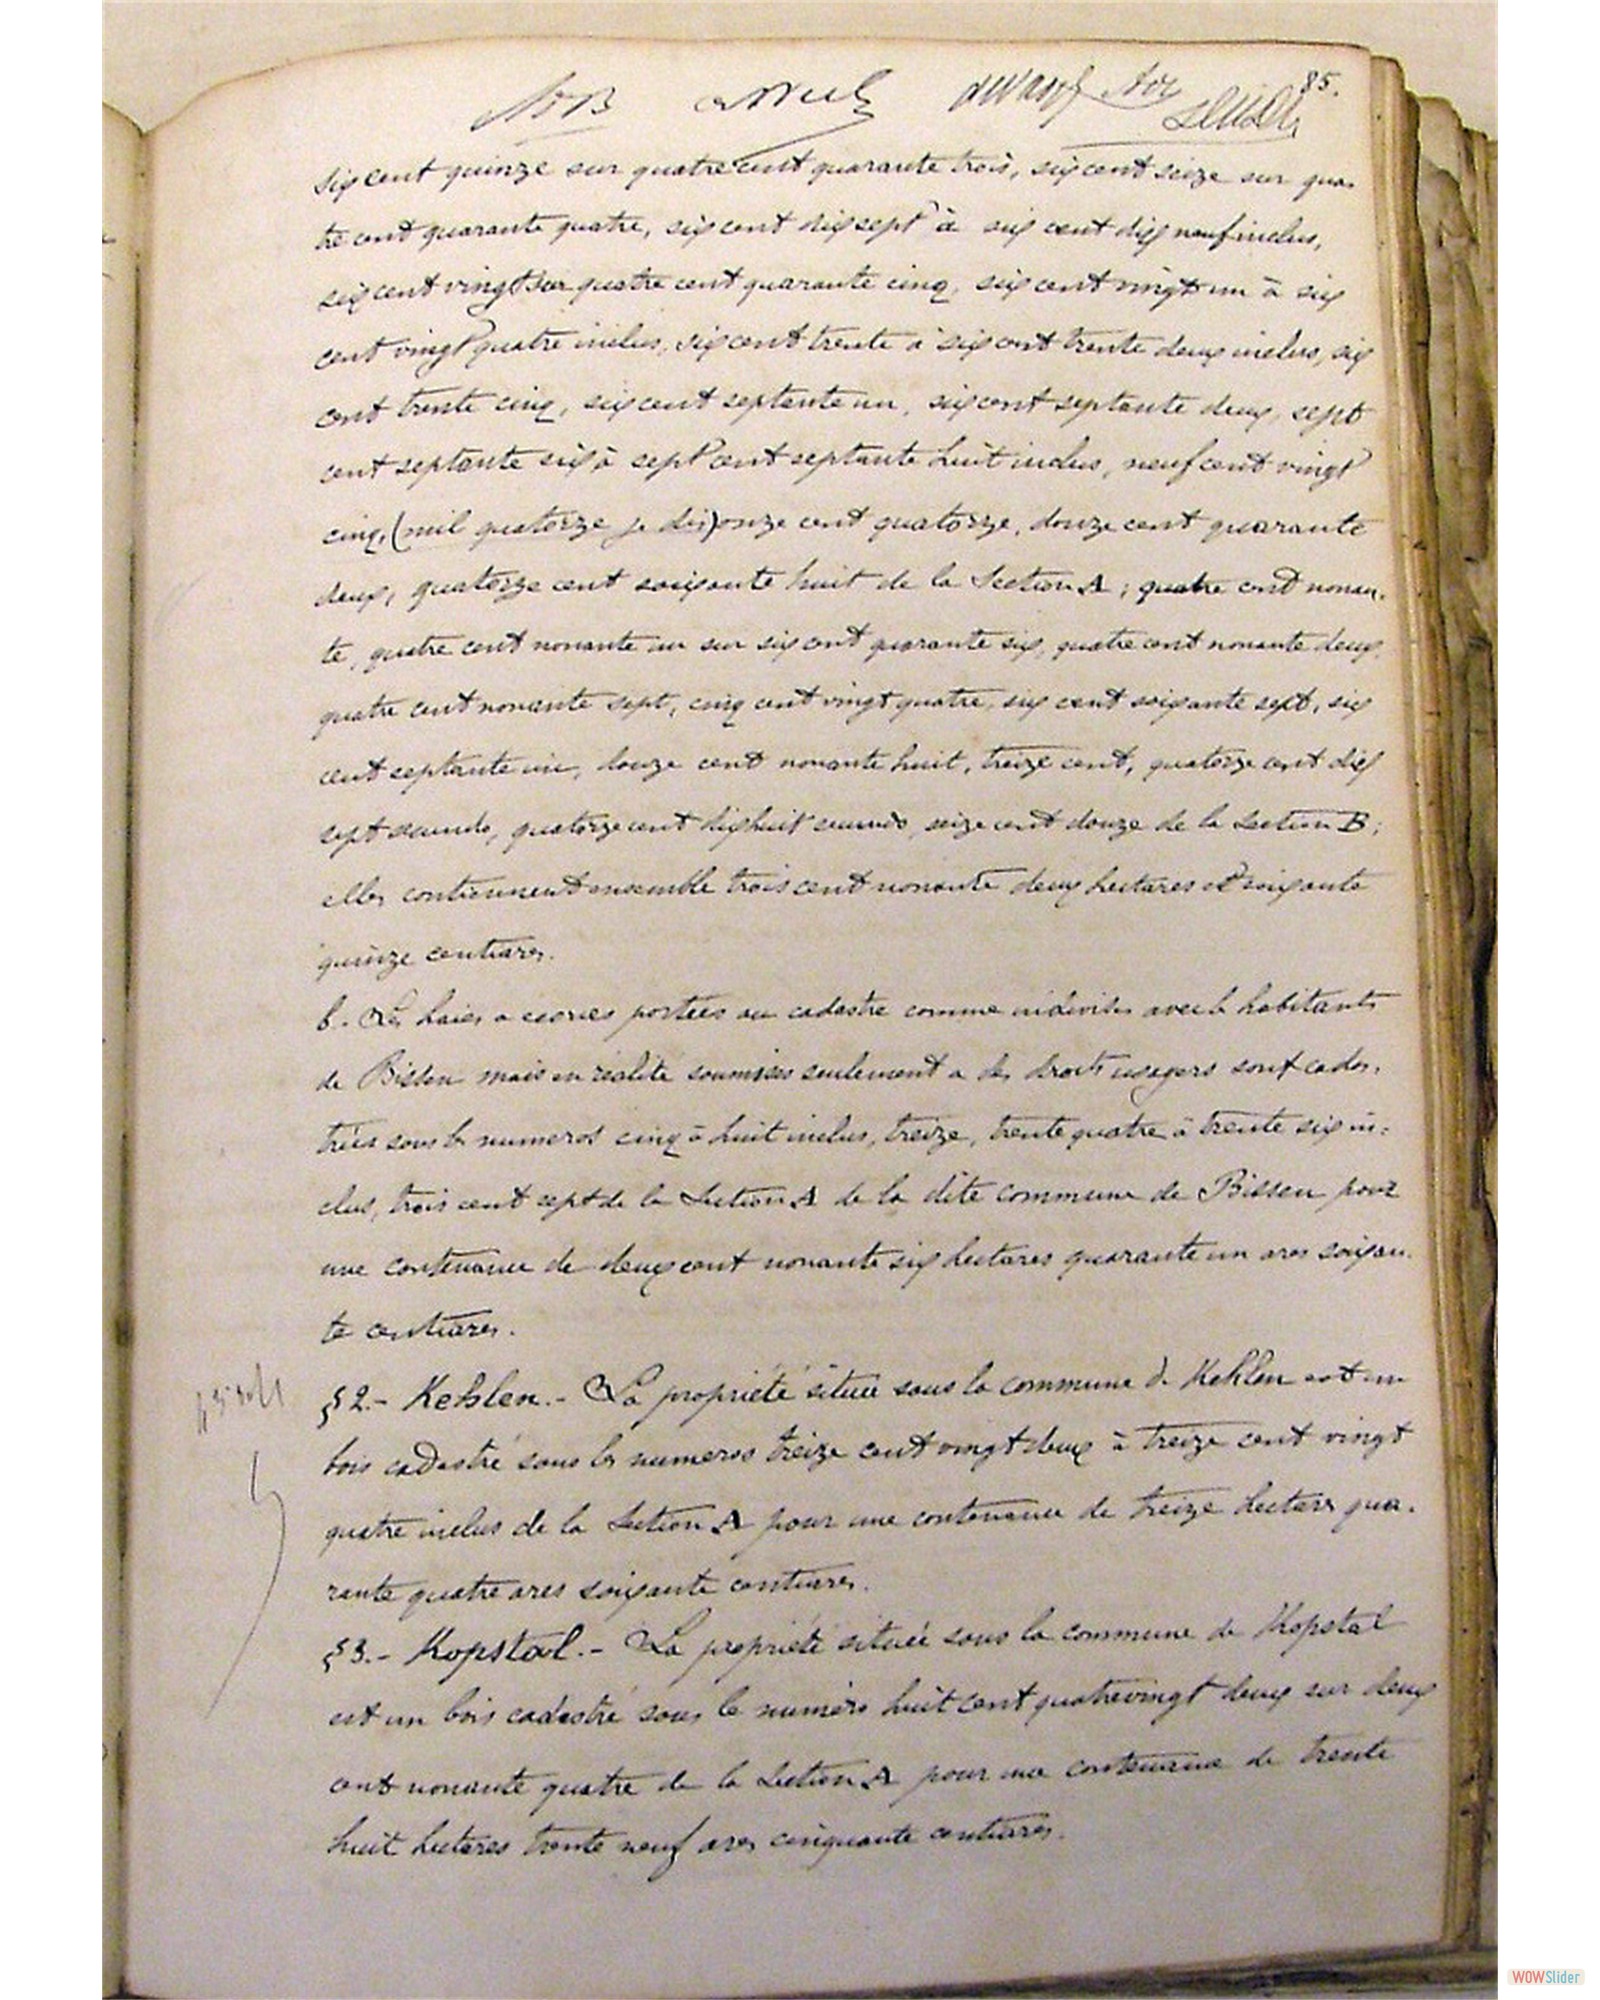 85.
six cent quinze sur quatre cent quarante trois, six cent seize sur qua-
tre cent quarante quatre, six cent dix sept à six cent dix neuf inclus,
six cent vingt sur quatre cent quarante cinq, six cent vingt un à six
cent vingt quatre inclus, six cent trente à six cent trente deux inclus, six
cent trente cinq, six cent septante un, six cent septante deux, sept
cent septante six à sept cent septante huit inclus, neuf cent vingt
cinq, (mil quatorze je dis) onze cent quatorze, douze cent quarante
deux, quatorze cent soixante huit de la Section A; quatre cent nonan-
te, quatre cent nonante un sur six cent quarante six, quatre cent nonante deux,
quatre cent nonante sept, cinq cent vingt quatre, six cent soixante sept, six
cent septante un, douze cent nonante huit, treize cent, quatorze cent dix
sept secundo, quatorze cent dix huit secundo, seize cent douze de la Section B;
elles contiennent ensemble trois cent nonante deux hectares et soixante
quinze centiares.
b. Les haies a ecorces portées au cadastre comme indivises avec les habitants
de Bissen mais en réalité soumises seulement a des droits usagers sont cadas-
trées sous les numeros cinq à huit inclus, treize, trente quatre à trente six in-
clus, trois cent sept de la Section A de la dite commune de Bissen pour
une contenance de deux cent nonante six hectares quarante un ares soixan-
te centiares.
§2.- Kehlen.- La propriété située sous la commune de Kehlen est un
bois cadastré sous les numeros treize cent vingt deux à treize cent vingt
quatre inclus de la Section A pour une contenance de treize hectares qua-
rante quatre ares soixante centiares.
§3.- Kopstal.- La propriété située sous la commune de Kopstal
est un bois cadastré sous le numéro huit cent quatrevingt deux sur deux
cent nonante quatre de la Section A pour une contenance de trente
huit hectares trente neuf ares cinquante centiares.
WOWSlider